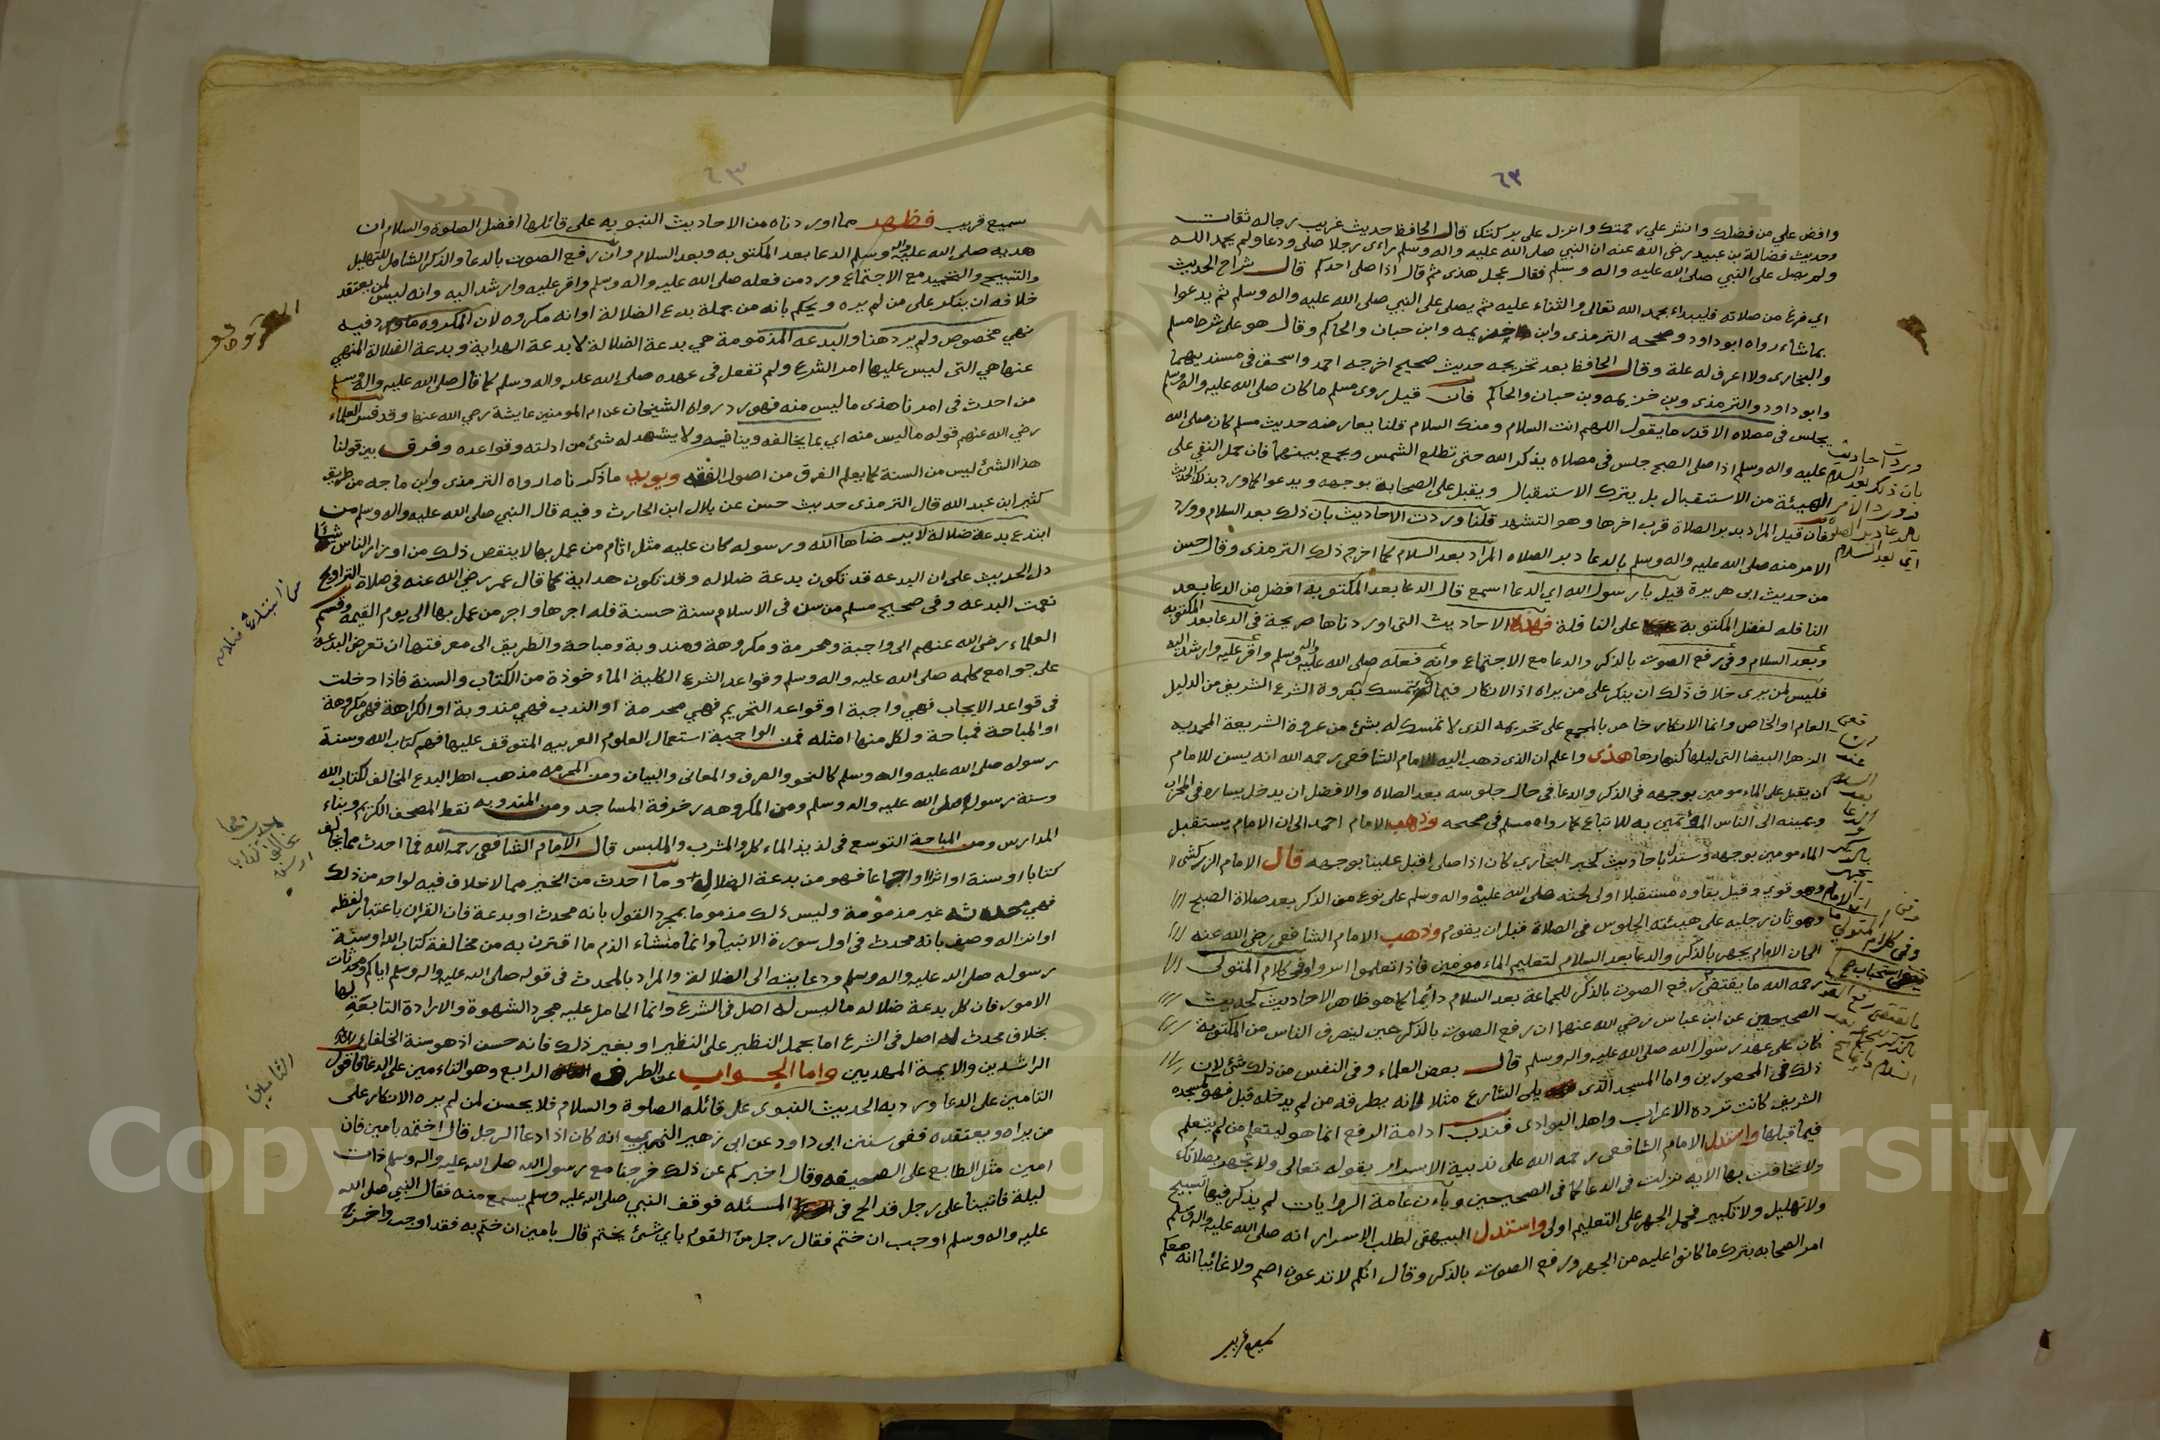 ٦٣
وافض علي من فضلك وانثر علي رحمتك وانزل علي بركتك قال الحافظ حديث غريب رجاله ثقات
وحديث فضالة بن عبيد رضي الله عنه ان النبي صلى الله عليه واله وسلم راى رجلا صلى ودعا ولم يحمد الله
ولم يصل على النبي صلى الله عليه واله وسلم فقال عجل هذى ثم قال اذا صلى احدكم قال شراح الحديث
اي فرغ من صلاته فليبداء بحمد الله تعالى والثناء عليه ثم يصلى على النبي صلى الله عليه واله وسلم ثم يدعوا
بما شاء رواه ابو داود وصححه الترمذى وابن خزيمه وابن حبان والحاكم وقال هو على شرط مسلم
والبخارى ولا اعرف له علة وقال الحافظ بعد تخريجه حديث صحيح اخرجه احمد واسحق فى مسنديهما
وابو داود والترمذى وبن خزيمه وبن حبان والحاكم فان قيل روى مسلم ما كان صلى الله عليه واله وسلم
يجلس فى مصلاه الا قدر ما يقول اللهم انت السلام ومنك السلام قلنا يعارضه حديث مسلم كان صلى الله
عليه واله وسلم اذا صلى الصبح جلس فى مصلاه يذكر الله حتى تطلع الشمس ويجمع بينهما فان يحمل النفي على
الهيئة من الاستقبال بل يترك الاستقبال ويقبل على الصحابة بوجهه ويدعوا كما ورد بذلك الحديث
فان قيل المراد بدبر الصلاة قرب اخرها وهو التشهد قلنا وردت الاحاديث بان ذلك بعد السلام وورد
الامر منه صلى الله عليه واله وسلم بالدعا دبر الصلاه المراد بعد السلام كما اخرج ذلك الترمذى وقال حسن
من حديث ابى هريرة قيل يا رسول الله اي الدعا اسمع قال الدعا بعد المكتوبة افضل من الدعا بعد
النافله لفضل المكتوبة على النافلة فهذه الاحاديث التى اوردناها صريحة فى الدعا بعد المكتوبه
وبعد السلام وفى رفع الصوت بالذكر والدعا مع الاجتماع وانه فعله صلى الله عليه واله وسلم واقر عليه وارشد اليه
فليس لمن يرى خلاف ذلك ان ينكر على من يراه اذ الانكار فيما لم يتمسك بعروة الشرع الشريف من الدليل
العام او الخاص وانما الانكار خاص بالمجمع على تحريمه الذى لا تمسك له بشئ من عروة الشريعة المحمديه
الزهرا البيضا التى ليلها كنهارها هذى واعلم ان الذى ذهب اليه الامام الشافعى رحمه الله انه يسن للامام
ان يقبل على الماءمومين بوجهه فى الذكر والدعا فى حال جلوسه بعد الصلاه والافضل ان يدخل يساره فى المحراب
ويمينه الى الناس المؤتمين به للاتباع كما رواه مسلم فى صحيحه وذهب الامام احمد الى ان الامام يستقبل
الماءمومين بوجهه وستدل باحاديث كخبر البخاري كان اذا صلى اقبل علينا بوجهه قال الامام الزركشي
وهو قوي وقيل بقاوه مستقبلا اولى لحثه صلى الله عليه واله وسلم على نوع من الذكر بعد صلاة الصبح
وهو ثان رجليه على هيئته الجلوس فى الصلاة قبل ان يقوم وذهب الامام الشافعى رضي الله عنه
الى ان الامام يجهر بالذكر والدعا بعد السلام لتعليم الماءمومين فاذا تعلموا اسر واوفى كلام المتولى
رحمه الله ما يقتضى رفع الصوت بالذكر للجماعة بعد السلام دائما كما هو ظاهر الاحاديث كحديث
الصحيحين عن ابن عباس رضي الله عنهما ان رفع الصوت بالذكر حين ينصرف الناس من المكتوبة
كان على عهد رسول الله صلى الله عليه واله وسلم قال بعض العلماء وفى النفس من ذلك شئ لان
ذلك فى المحصورين واما المسجد الذى يلى الشارع مثلا فانه يطرقه من لم يدخله قبل فهو كمسجده
الشريف كانت ترده الاعراب واهل البوادى فندب ادامة الرفع انما هو ليتعلم من لم يتعلم
فيما قبلها واستدل الامام الشافعى رحمه الله على ندبية الاسرار بقوله تعالى ولا تجهر بصلاتك
ولا تخافت بها الايه نزلت فى الدعا كما فى الصحيحين وباءن عامة الروايات لم يذكر فيها تسبيح
ولا تهليل ولا تكبير فحمل الجهر على التعليم اولى واستدل البيهقى لطلب الاسرار انه صلى الله عليه واله وسلم
امر الصحابه بترك ما كانوا عليه من الجهر ورفع الصوت بالذكر وقال انكم لا تدعون اصم ولا غائبا انه معكم
سميع قريب
وردت احاديث
بان ذكر بعد السلام
وورد الامر
بالدعا دبر الصلوة
اي بعد السلام
وفى كلام المتولي
ما يقتضى رفع الصوت
سميع قريب فظهر مما اوردناه من الاحاديث النبويه على قائلها افضل الصلوة والسلام ان
هديه صلى الله عليه واله وسلم الدعا بعد المكتوبه وبعد السلام وان رفع الصوت بالدعا والذكر الشامل للتهليل
والتسبيح والتحميد مع الاجتماع ورد من فعله صلى الله عليه واله وسلم واقر عليه وارشد اليه وانه ليس لمن يعتقد
خلافه ان ينكر على من لم يره ويحكم بانه من جملة بدع الضلالة او انه مكروه لان المكروه ما ورد فيه
نهي مخصوص ولم يرد هنا والبدعه المذمومة هي بدعة الضلالة لا بدعة الهداية وبدعة الضلالة المنهي
عنها هي التى ليس عليها امر الشرع ولم تفعل فى عهده صلى الله عليه واله وسلم كما قال صلى الله عليه واله وسلم
من احدث فى امرنا هذى ما ليس منه فهو رد رواه الشيخان عن ام المومنين عايشة رضي الله عنها وقد فسر العلماء
رضي الله عنهم قوله ما ليس منه اي بما يخالفه وينافيه ولا يشهد له شئ من ادلته وقواعده وفرق بين قولنا
هذا الشئ ليس من السنة كما يعلم الفرق من اصول الفقه ويويد ما ذكرناه ما رواه الترمذى وابن ماجه من طريق
كثير ابن عبد الله قال الترمذى حديث حسن عن بلال ابن الحارث وفيه قال النبي صلى الله عليه واله وسلم من
ابتدع بدعة ضلالة لا يرضاها الله ورسوله كان عليه مثل اثام من عمل بها لا ينقص ذلك من اوزار الناس شيئا
دل الحديث على ان البدعه قد تكون بدعة ضلاله وقد تكون هداية كما قال عمر رضي الله عنه فى صلاة التراويح
نعمت البدعه وفى صحيح مسلم من سن فى الاسلام سنة حسنة فله اجرها واجر من عمل بها الى يوم القيمة وقسم
العلماء رضي الله عنهم الى واجبة ومحرمة ومكروهة ومندوبة ومباحة والطريق الى معرفتها ان تعرض البدعة
على جوامع كلمه صلى الله عليه واله وسلم وقواعد الشرع الكلية الماءخوذة من الكتاب والسنة فاذا دخلت
فى قواعد الايجاب فهي واجبة او قواعد التحريم فهي محرمة او الندب فهي مندوبة او الكراهة فهي مكروهة
او المباحة فمباحة ولكل منها امثله فمن الواجبة استعمال العلوم العربيه المتوقف عليها فهم كتاب الله وسنة
رسوله صلى الله عليه واله وسلم كالنحو والصرف والمعانى والبيان ومن المحرمه مذهب اهل البدع المخالف لكتاب الله
وسنة رسول الله صلى الله عليه واله وسلم ومن المكروهه زخرفة المساجد ومن المندوبه نقط المصحف الكريم وبناء
المدارس ومن المباحة التوسع فى لذيذ الماءكل والمشرب والملبس قال الامام الشافعى رحمه الله فما احدث مما يخالف
كتابا او سنة او اثرا او اجماعا فهو من بدعة الضلاله وما احدث من الخير مما لا خلاف فيه لواحد من ذلك
فهي محدثه غير مذمومة وليس ذلك مذموما بمجرد القول بانه محدث او بدعة فان القران باعتبار لفظه
او انزاله وصف بانه محدث فى اول سورة الانبيا وانما منشاء الذم ما اقترن به من مخالفة كتاب الله او سنة
رسوله صلى الله عليه واله وسلم ودعايته الى الضلالة والمراد بالمحدث فى قوله صلى الله عليه واله وسلم اياكم ومحدثات
الامور فان كل بدعة ضلاله ما ليس له اصل فى الشرع وانما الحامل عليه مجرد الشهوة والارادة التابعة لها
بخلاف محدث له اصل فى الشرع اما بحمل النظير على النظير او بغير ذلك فانه حسن اذ هو سنة الخلفاء
الراشدين والايمة المهديين واما الجواب عن الطرف الرابع وهو التاءمين على الدعا فاقول
التامين على الدعا ورد به الحديث النبوى على قائله الصلوة والسلام فلا يحسن لمن لم يره الانكار على
من يراه ويعتقده ففى سنن ابى داود عن ابى زهير النميري انه كان اذا دعا الرجل قال اختمه بامين فان
امين مثل الطابع على الصحيفه وقال اخبركم عن ذلك خرجنا مع رسول الله صلى الله عليه واله وسلم ذات
ليلة فاتينا على رجل قد الح فى المسئله فوقف النبي صلى الله عليه وسلم يسمع منه فقال النبي صلى الله
عليه واله وسلم اوجب ان ختم فقال رجل من القوم باي شئ يختم قال بامين ان ختم به فقد اوجب واخرج
من ابتدع ضلاله
التامين
Copyright © King Saud University